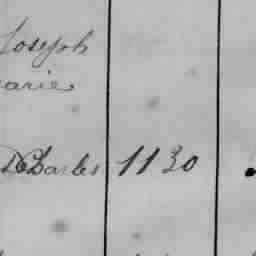 Joseph
arie
Charles 1130